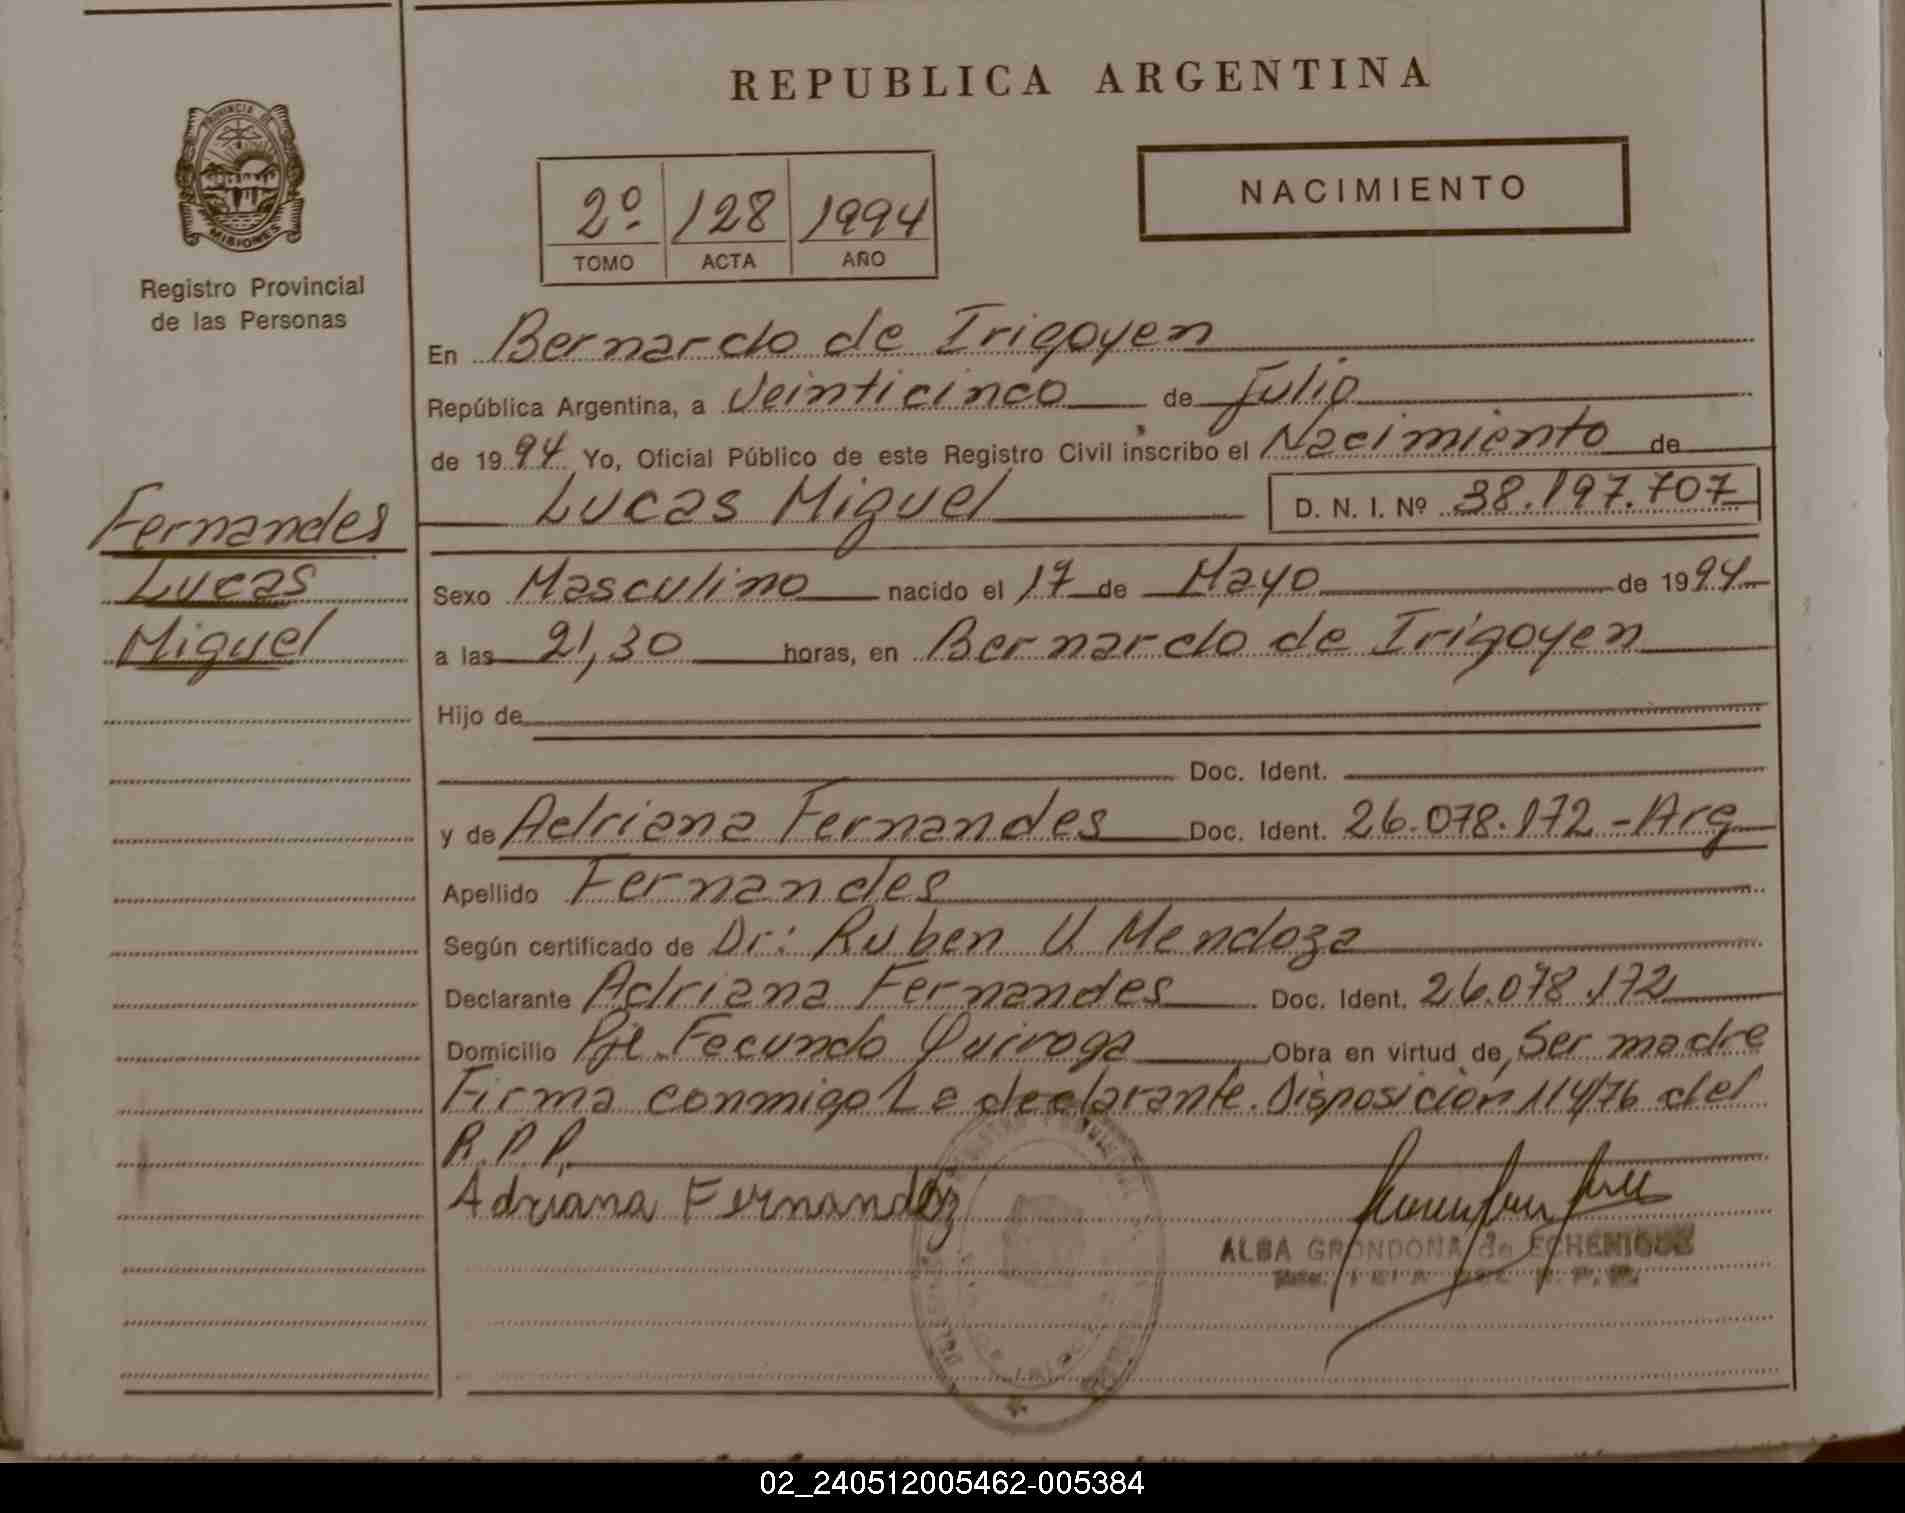 REPUBLICA ARGENTINA
PROVINCIA DE
MISIONES
Registro Provincial
de las Personas
2º 128 1994
TOMO ACTA AÑO
NACIMIENTO
En Bernardo de Irigoyen
República Argentina, a Veinticinco de Julio
de 1994 Yo, Oficial Público de este Registro Civil inscribo el Nacimiento de
Lucas Miguel D. N. I. Nº 38.197.707
Fernandes
Lucas
Miguel
Sexo Masculino nacido el 17 de Mayo de 1994
a las 21,30 horas, en Bernardo de Irigoyen
Hijo de
Doc. Ident.
y de Adriana Fernandes Doc. Ident. 26.078.172 - Arg
Apellido Fernandes
Según certificado de Dr: Ruben U. Mendoza
Declarante Adriana Fernandes Doc. Ident. 26.078.172
Domicilio Pje. Fecundo Quiroga Obra en virtud de, Ser madre
Firma conmigo La declarante. Disposición 114/76 del
R.P.P.
Adriana Fernandez
ALBA GRONDONA de ECHENIQUE
02_240512005462-005384